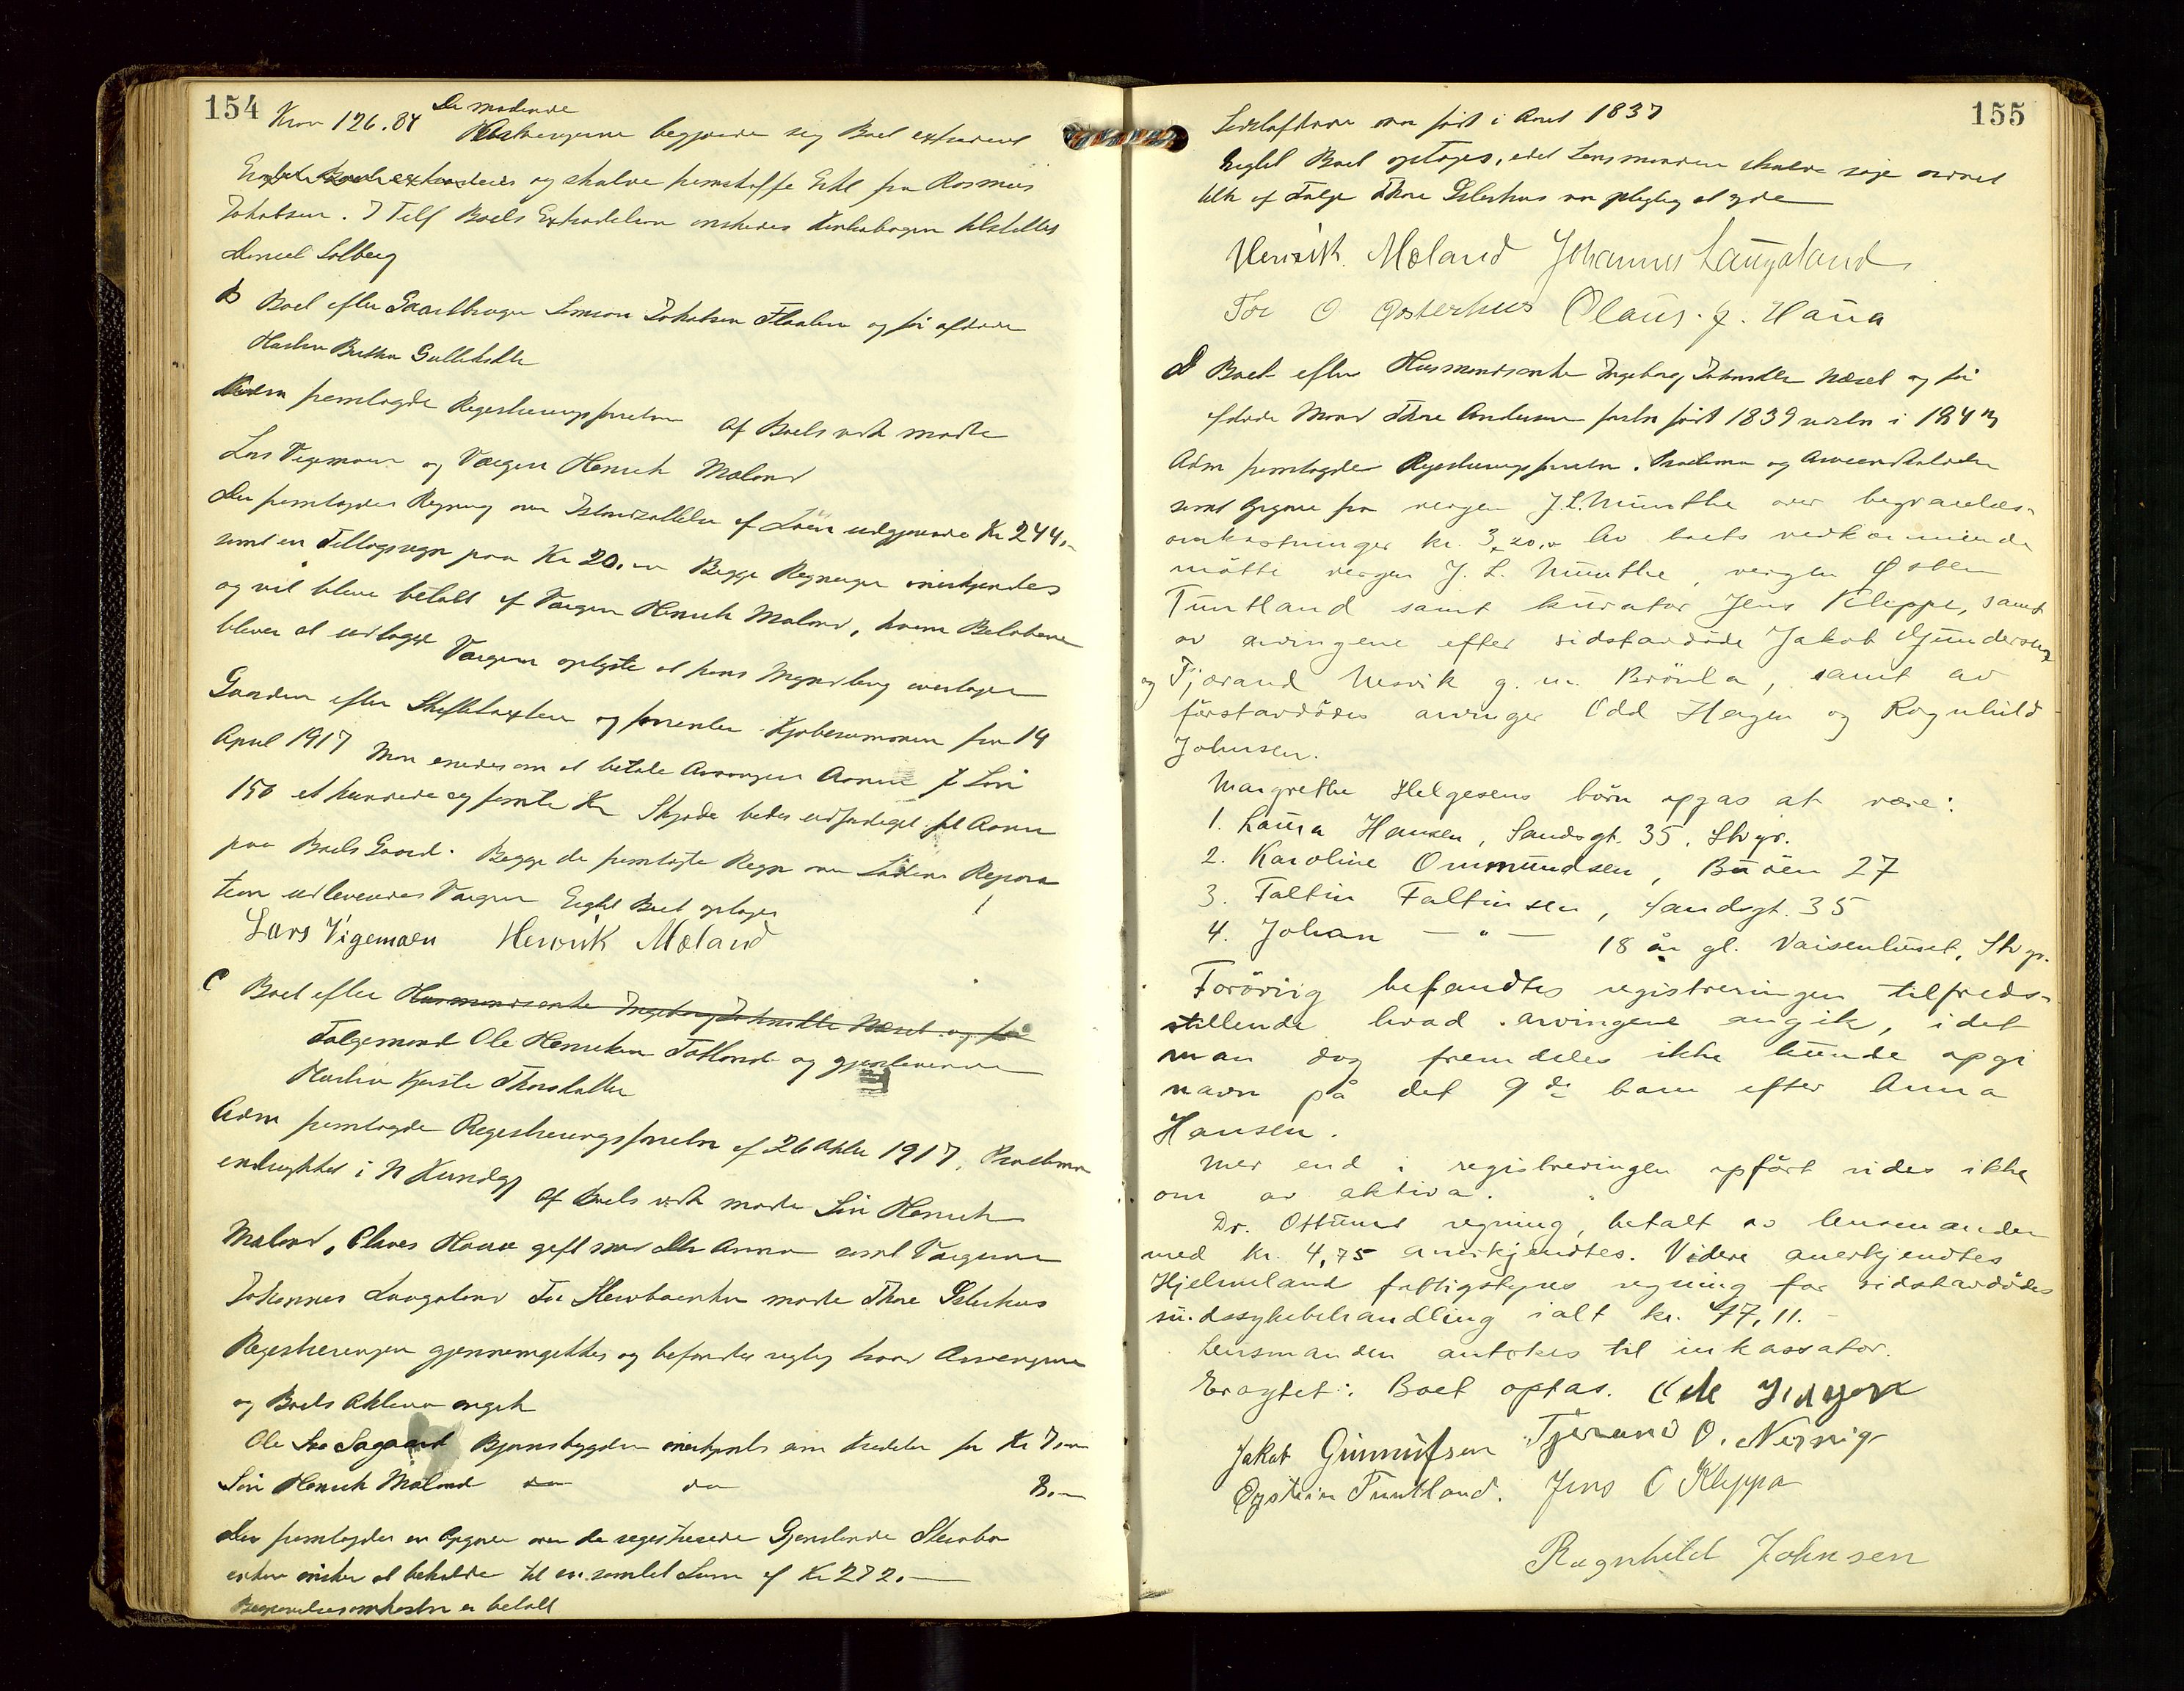 154
Krav 126.84 De mødende
Arvingerne begjærede sig Boet extraderet
Eragtet Boet extraderes og skulde fremskaffe Erkl fra Rasmus
Jakobsen. I Tilf Boets Extradition ønskedes Bankbogen tilstillet
Daniel Solberg
B Boet efter Gaardbruger Simon Jakobsen Flaaten og før afdøde
Hustru Berthe Gulleiksdtr
Adm fremlagde Registreringsforretn Af Boets vedk mødte
Lars Vigemoen og Værgen Henrik Møland
Der fremlagdes Regning over Istandsættelse af Laaen udgjørende Kr 244,-
samt en Tillægsregn paa Kr 20.- Begge Regninger anerkjendes
og vil blive betalt af Værgen Henrik Møland, hvem Beløbene
bliver at udlægge Værgen oplyste at hans Myndling overtager
Gaarden efter Skiftetaxten og forrenter Kjøbesummen fra 14
April 1917 Man enedes om at betale Arvingen
150 et hundrede og femti Kr Skjøde bedes udfærdiget til
paa Boets Gaard. Begge de fremlagte Regn over Ladens Repara
tion udleveredes Værgen Eragtet Boet optages
Lars Vigemoen Henrik Møland
C Boet efter Husmandsenke Ingeborg Johnsdtr Næset og før
Følgemand Ole Henriksen Tøtland og gjenlevende
Hustru Kjersti Thorsdatter
Adm fremlagde Registreringsforretn af 26 Oktbr 1917. Proclama
indrykket i N Kundgj Af Boets vedk mødte Søn Henrik
Møland, Olaus Haua gift med Dtr Anna samt Værgerne
Johannes Laugaland For Stervboenken mødte Thore Østerhus
Registreringen gjennemgikkes og befandtes rigtig hvad Arvingerne
og Boets Aktiva angik
Ole Sagaard Bjønsbygden anerkjendtes som Kreditor for Kr 7.-
Søn Henrik Møland do do 8.-
Der fremlagdes en Opgave over de registrerede Gjenstande Stervbo
enken ønsker at beholde til en samlet Sum af Kr 272.-
Begravelsesomkostn er betalt
155
Sidstafdøde var født i Aaret 1837
Eragtet Boet optages, idet Lensmanden skulde søge ordnet
Utk af Følge Thore Østerhus var pligtig at yde
Henrik Møland Johannes Laugaland
Tor O Østerhus Olaus. J. Haua
D Boet efter Husmandsenke Ingeborg Johnsdtr Næset og før
afdøde Mand Thore Andersen førstn født 1839 sidstn i 1847
Adm fremlagde Registreringsforretn. Proclama og Arveindkaldelse
samt Opgave fra vergen J. L. Munthe over begravelses-
omkostninger kr. 320,- Av boets vedkommende
møtte vergen J. L. Munthe, vergen Østen
Tuntland samt kurator Jens Kleppe, samt
av arvingene efter sidstavdøde Jakob Gundersen
og Tjærand Nesvik g. m. Brønla, samt av
førstavdødes arvinger Odd Hagen og Ragnhild
Johnsen.
Margrethe Helgesens børn opgas at være:
1. Laura Hansen, Sandsgt. 35, Stvgr.
2. Karoline Ommundsen, Buøen 27
3. Faltin Faltinsen, Sandsgt. 35
4. Johan — " — 18 år gl. Vaisenhuset, Stvgr.
Forøvrig befandtes registreringen tilfreds-
stillende hvad arvingene angik, idet
man dog fremdeles ikke kunde opgi
navn på det 9de barn efter Anna
Hansen.
Mer end i registreringen opført vides ikke
om av aktiva.
Dr. Ottums regning, betalt av lensmanden
med kr. 4,75 anerkjendtes. Videre anerkjendtes
Hjelmeland fattigstyres regning for sidstavdødes
sindssykebehandling ialt kr. 77,11.-
Lensmanden antokes til inkassator.
Eragtet: Boet optas.
Jakob Gunnufsen Tjerand O. Nesvig
Øystein Tuntland. Jens O Kleppa
Ragnhild Johnsen